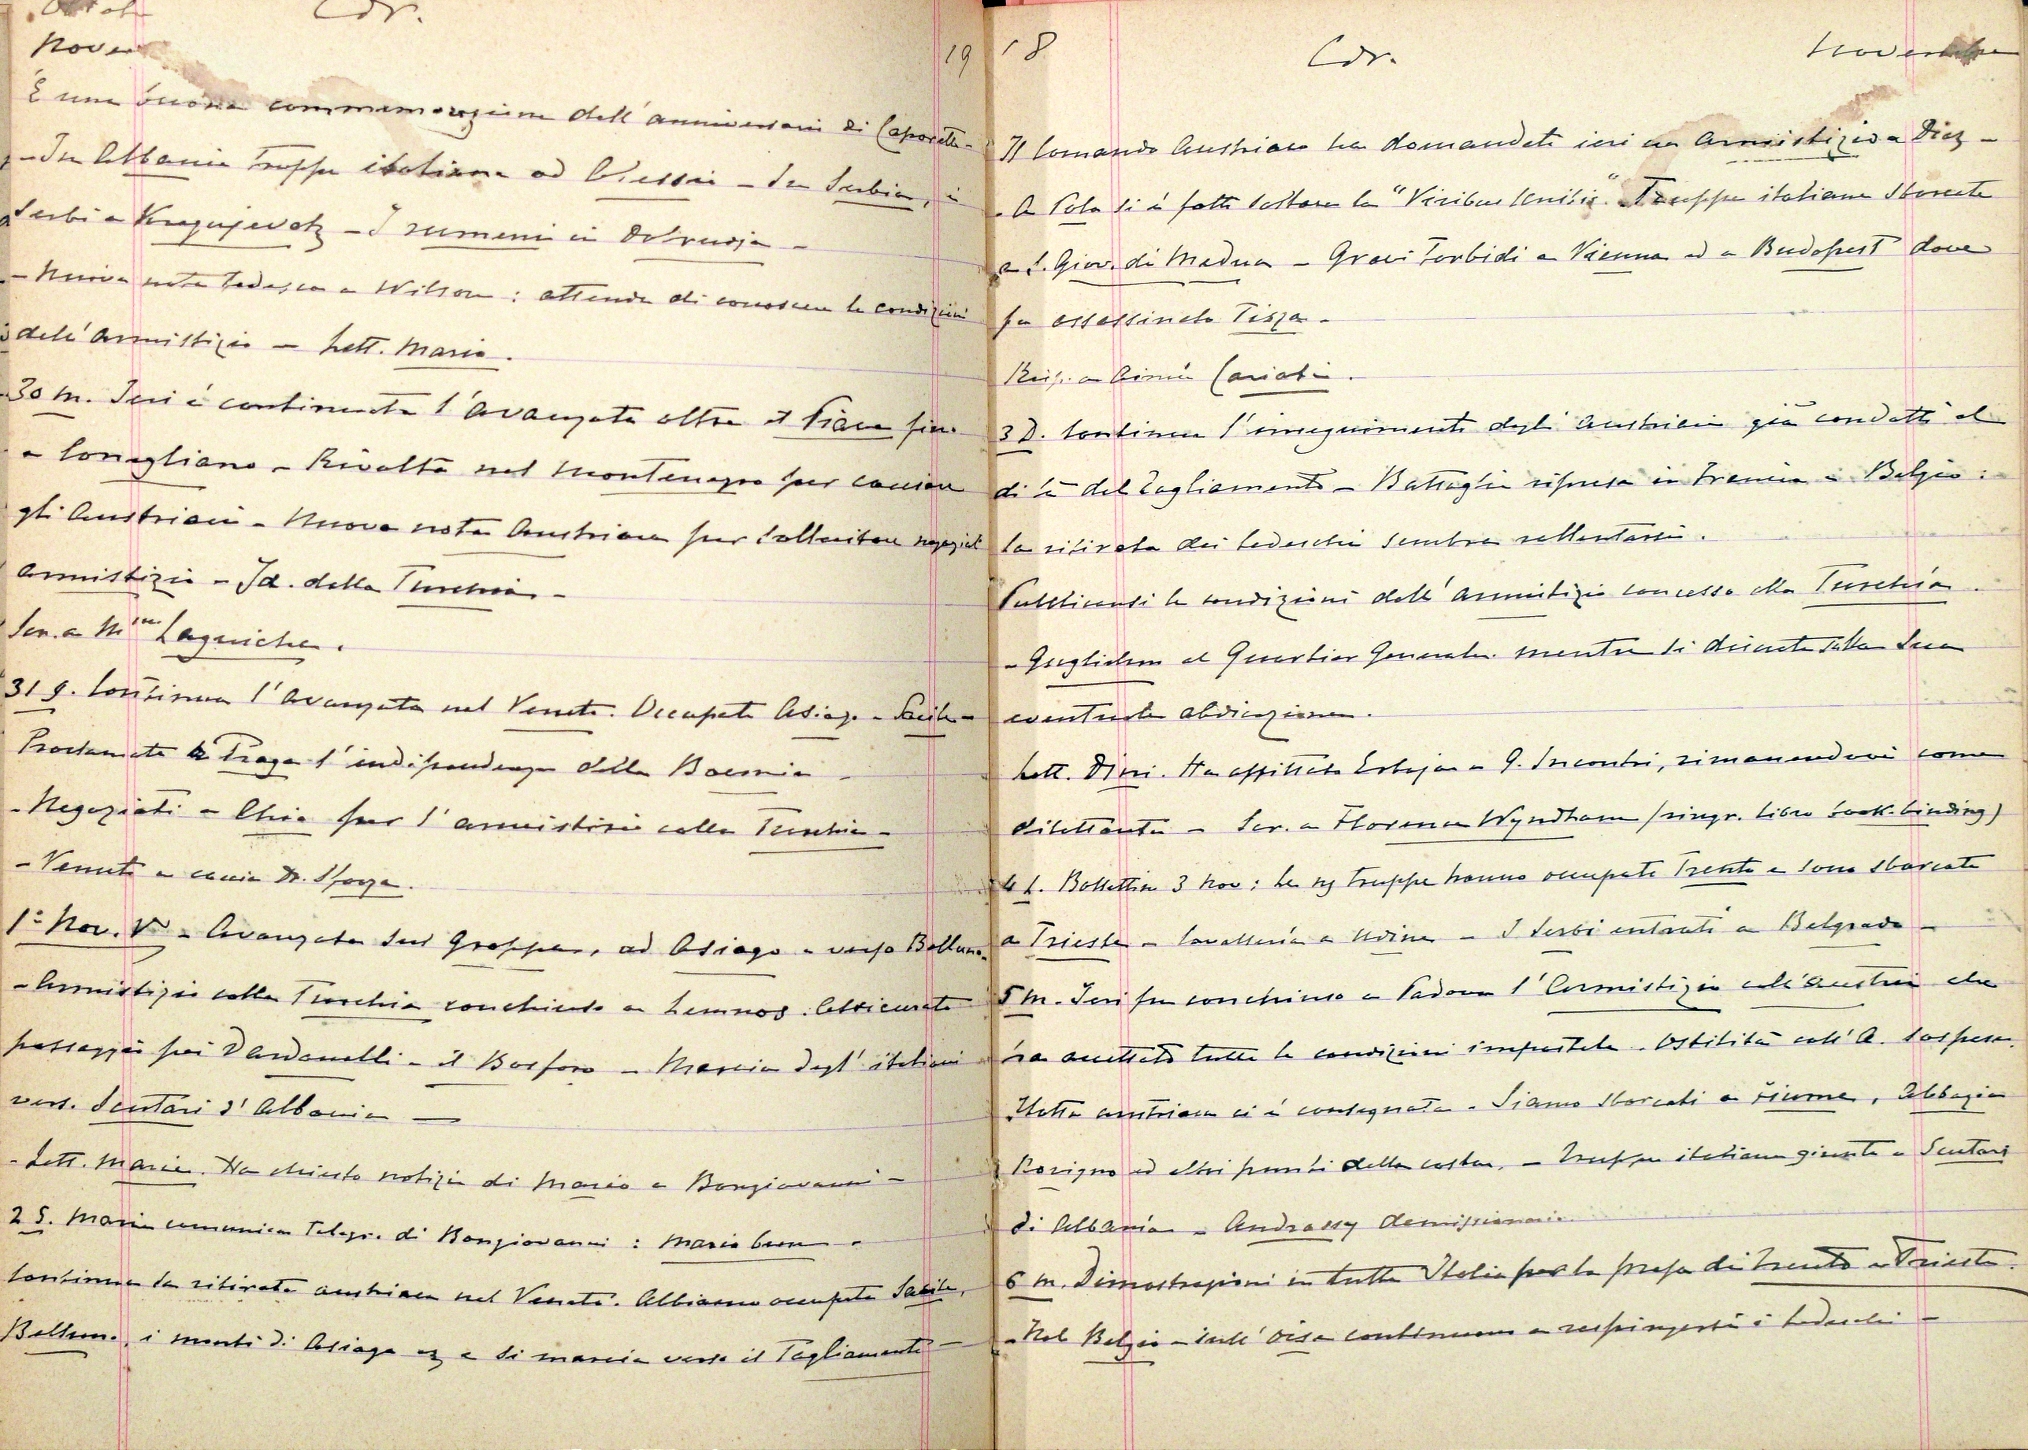 Ottob
Cdr.
Novem
19
È una buona commemorazione dell'anniversario di Caporetto -
- In Albania truppe italiane ad Alessio - In Serbia, i
Serbi a Kragujevatz - I rumeni in Dobrugia -
- Nuova nota tedesca a Wilson : attende di conoscere le condizioni
dell'armistizio - Lett. Mario.
30 M. Ieri è continuata l'avanzata oltre il Piave fino
a Conegliano - Rivolta nel Montenegro per cacciare
gli Austriaci - Nuova nota Austriaca per sollecitare negoziati
armistizio - Id. della Turchia -
Scr. a Mme Laguiche.
31 G. Continua l'avanzata nel Veneto. Occupato Asiago - Sacile -
Proclamata a Praga l'indipendenza della Boemia -
- Negoziati a Chio per l'armistizio colla Turchia -
- Venuto a caccia Dr. Sforza.
1° Nov. V - Avanzata sul Grappa, ad Asiago e verso Belluno -
- Armistizio colla Turchia conchiuso a Lemnos. Assicurato
passaggio pei Dardanelli e il Bosforo - Marcia degl'italiani
verso Scutari d'Albania —
- Lett. Maria. Ha chiesto notizie di Mario a Bongiovanni -
2 S. Maria comunica telegr. di Bongiovanni : Mario bene -
Continua la ritirata austriaca nel Veneto. Abbiamo occupato Sacile,
Belluno, i monti di Asiago ez e si marcia verso il Tagliamento -
18
Cdr.
Novembre
Il Comando Austriaco ha domandato ieri un armistizio a Diaz -
- A Pola si è fatta saltare la "Viribus Unitis". Truppe italiane sbarcate
a S. Giov. di Medua - Gravi torbidi a Vienna ed a Budapest dove
fu assassinato Tisza -
Risp. a Cariati.
3 D. Continua l'inseguimento degli austriaci già condotti al
di là del Tagliamento - Battaglia ripresa in Francia e Belgio :
la ritirata dei tedeschi sembra rallentarsi.
Pubblicansi le condizioni dell'armistizio concesso alla Turchia.
- Guglielmo al Quartier Generale mentre si discute sulla sua
eventuale abdicazione.
Lett. Dini. Ha affittato a G. Incontri, rimanendovi come
dilettante - Scr. a Florence Wyndham (ringr. libro book-binding)
4 L. Bollettino 3 Nov : Le ns truppe hanno occupato Trento e sono sbarcate
a Trieste - Cavalleria a Udine - I Serbi entrati a Belgrado -
5 M. Ieri fu conchiuso a Padova l'Armistizio coll'Austria che
ha accettato tutte le condizioni impostele. Ostilità coll'A. sospese.
Flotta austriaca ci è consegnata. Siamo sbarcati a Fiume, Abbazia
Rovigno ed altri punti della costa. - Truppe italiane giunte a Scutari
di Albania - Andrassy demissionario.
6 M. Dimostrazioni in tutta Italia per la presa di Trento e Trieste.
- Nel Belgio e sull'Oise continuano a respingersi i tedeschi -